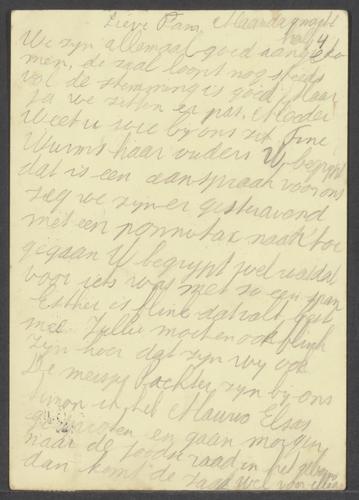 Lieve Fam, Maandagnacht
half 4
We zijn allemaal goed aangeko
men, de zaal loopt nog steeds
vol de stemming is goed. Maar
ja we zitten er pas. Moeder
Weet u wie bij ons zit Fine
Wurms haar ouders U begrijpt
dat is een aanspraak voor ons
zeg we zijn er gisteravond
met een naar toe
gegaan U begrijpt wel wat dat
voor iets was met zo een
Esther is flink dat valt best
mee. Jullie moeten ook flink
zijn hoor dat zijn wij ook
De meisjes zijn bij ons
Maurits Elsas
en gaan morgen
naar de Joodse raad in het
dan komt de zaak wel voor